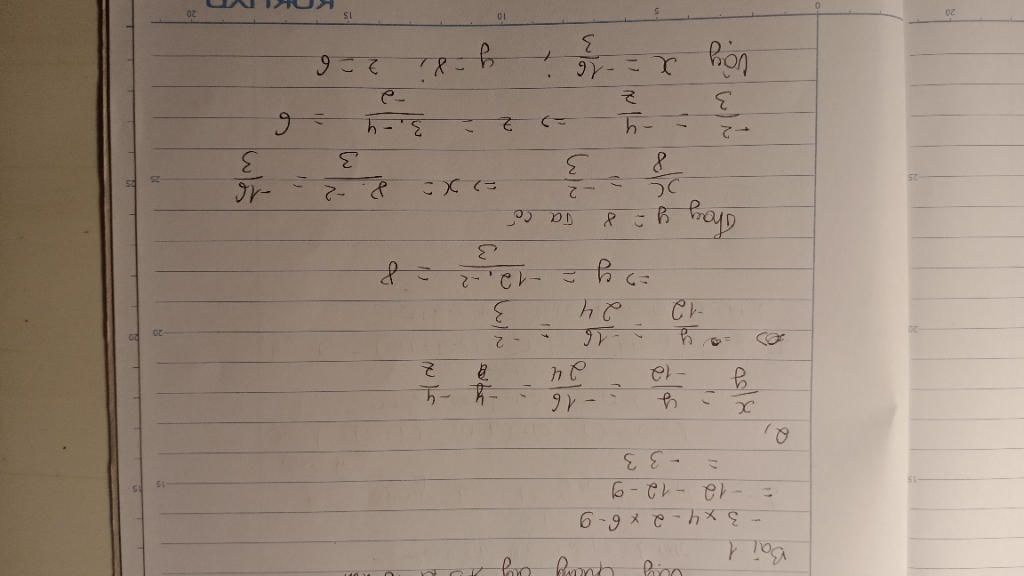 Vậy quãng
Bài 1
- 3 x 4 - 2 x 6 - 9
= - 12 - 12 - 9
= - 33
a,
x/y = y/-12 = -16/24 = -4/z
=> y/-12 = -16/24 = -2/3
=> y = -12.-2/3 = 8
Thay y = 8 ta có
x/8 = -2/3 => x = 8.-2/3 = -16/3
-2/3 = -4/z => z = 3.-4/-2 = 6
Vậy x = -16/3 ; y = 8 ; z = 6
KOKUYO